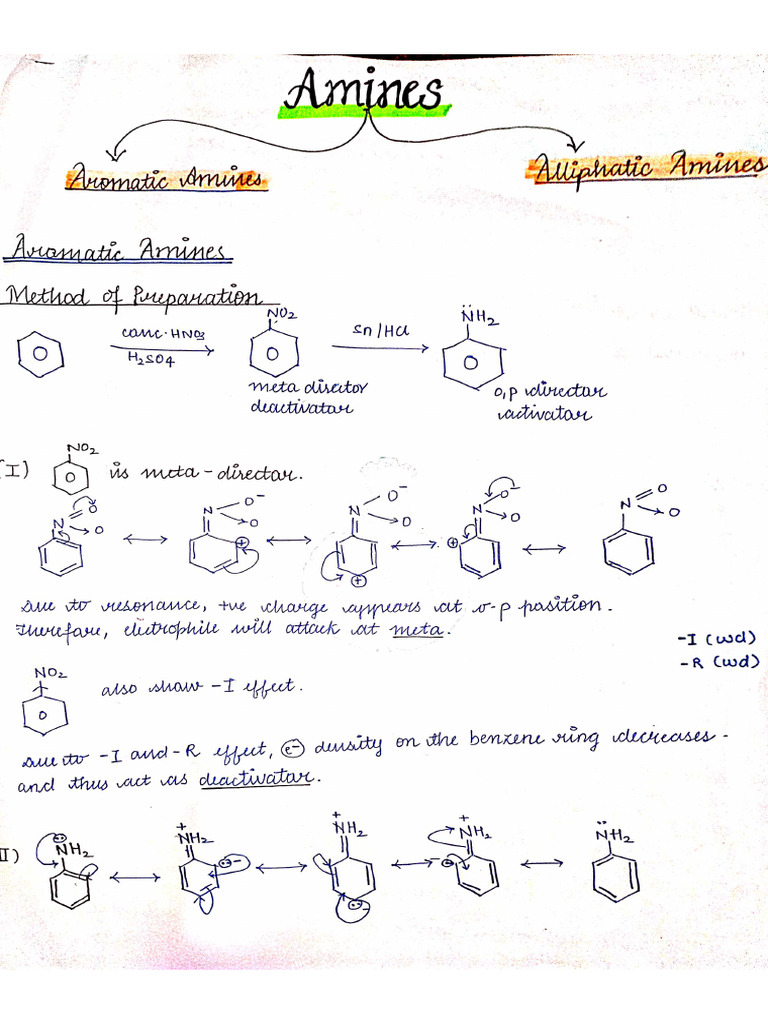 Amines
Aromatic Amines
Alliphatic Amines
Aromatic Amines
Method of Preparation
conc·HNO3
H2SO4
NO2
Sn/HCl
NH2
meta director
deactivator
o,p director
activator
(I) NO2 is meta-director.
N O O
N O- O
N O- O
N O- O
N O O
Due to resonance, +ve charge appears at o-p position.
Therefore, electrophile will attack at meta.
-I (wd)
-R (wd)
NO2
also show -I effect.
Due to -I and -R effect, e- density on the benzene ring decreases -
and thus act as deactivator.
II)
NH2
+NH2
+NH2
+NH2
NH2